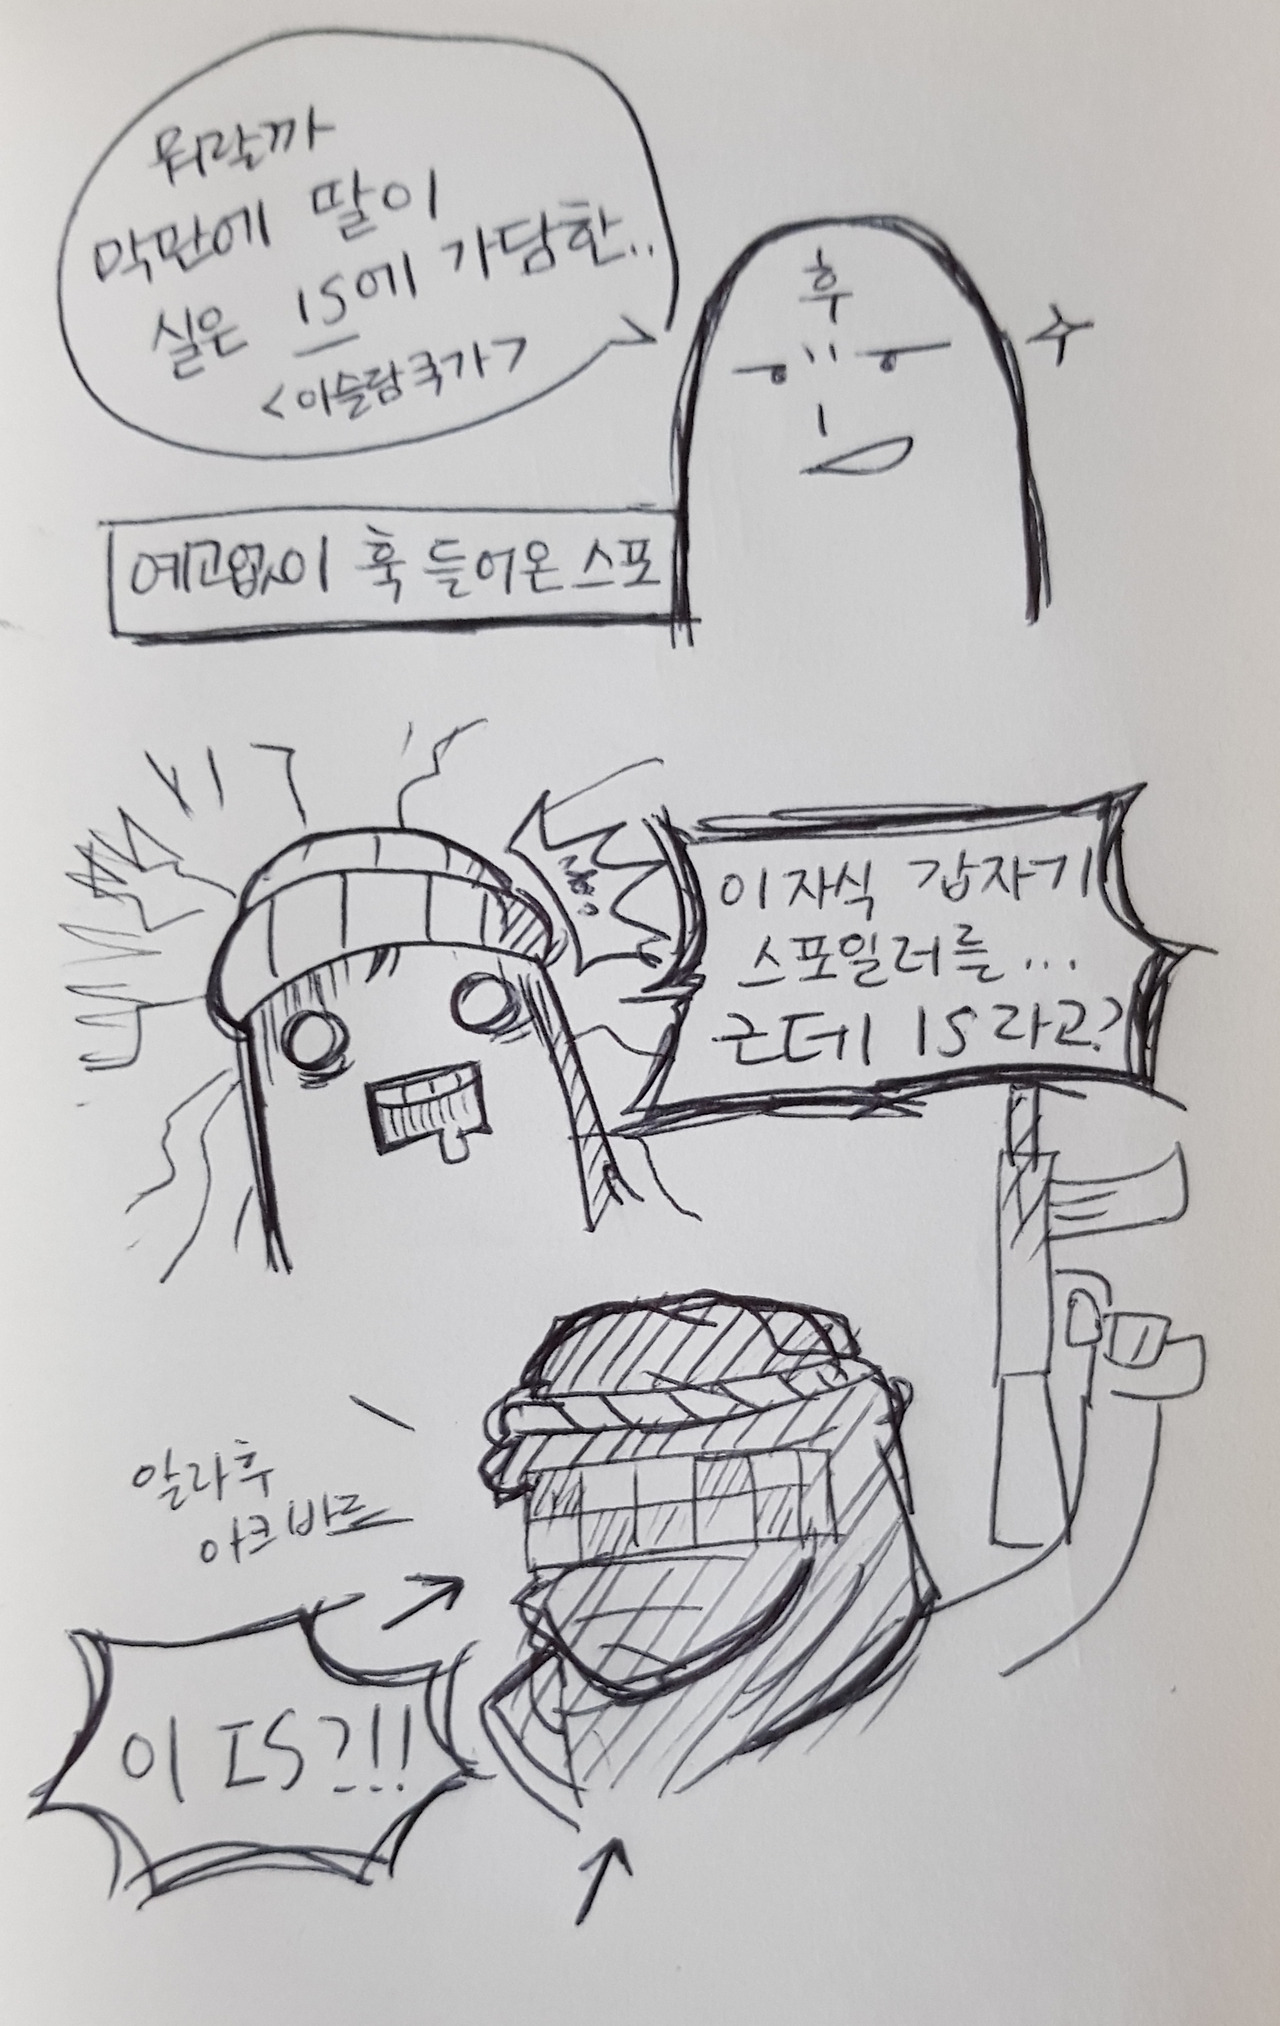 뭐랄까
막판에 딸이
실은 IS에 가담한..
<이슬람국가>
후
예고없이 훅 들어온 스포
이자식 갑자기
스포일러를...
근데 IS라고?
알라후
아크바르
이 IS?!!